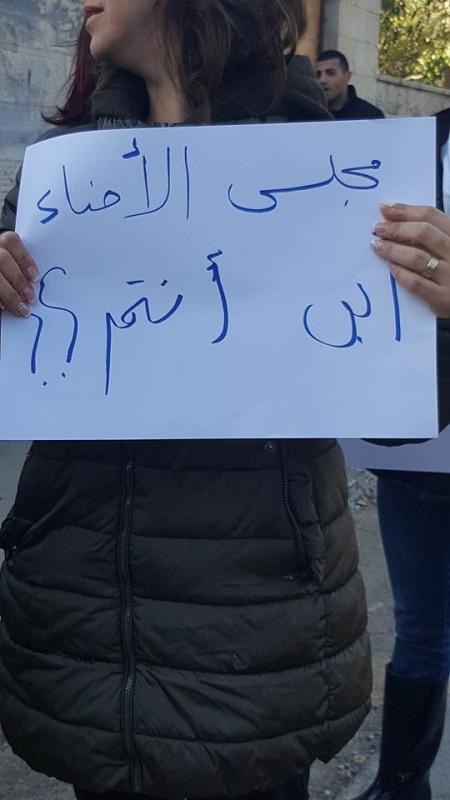 مجلس الأمناء
أين أنتم؟؟